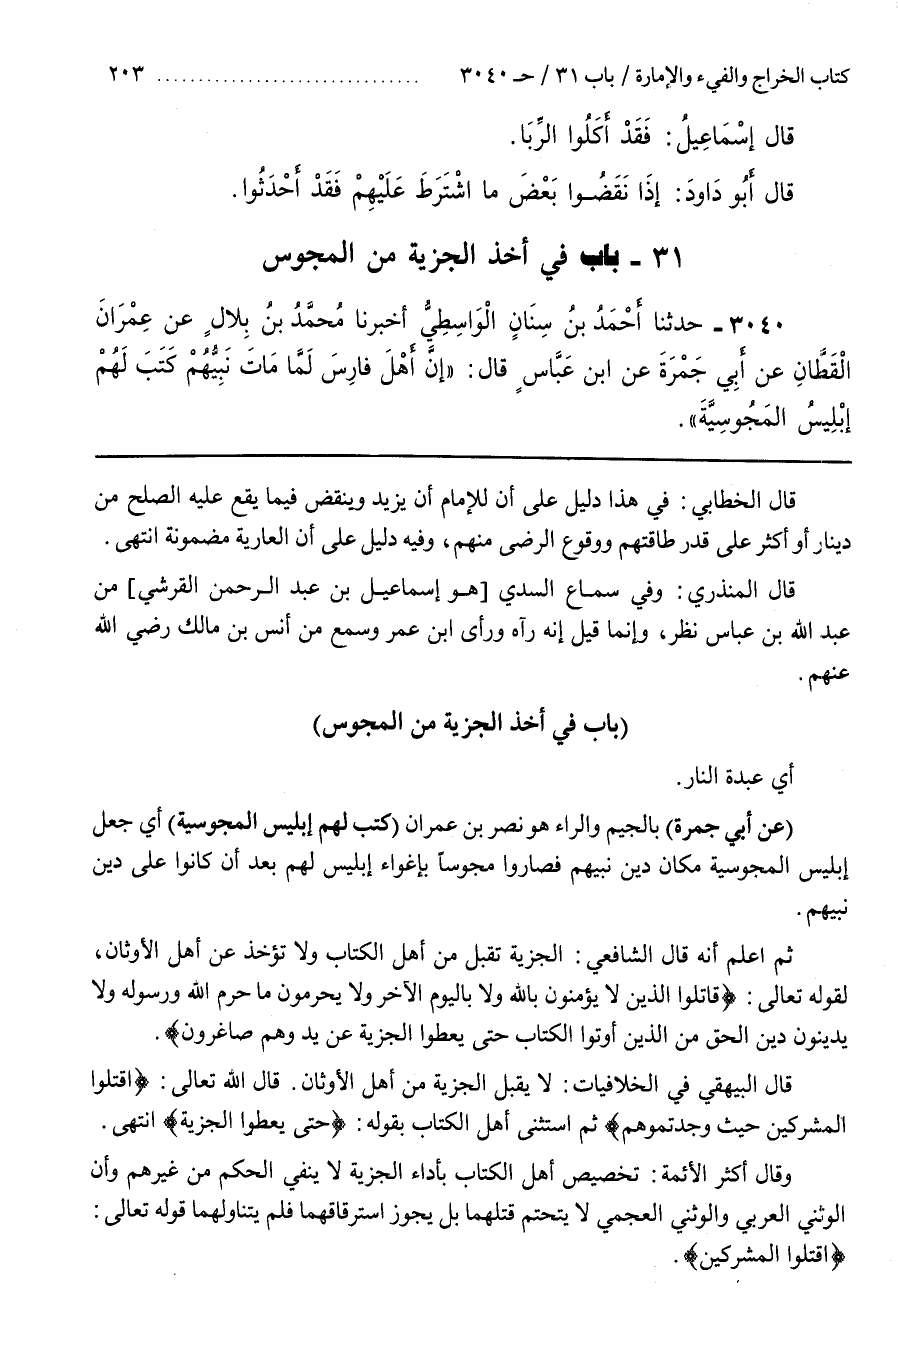 كتاب الخراج والفيء والإمارة / باب ٣١ / حـ ٣٠٤٠ .............................. ٢٠٣
قال إسْمَاعِيلُ: فَقَدْ أَكَلُوا الرِّبَا.
قال أَبُو دَاودَ: إذَا نَقَضُوا بَعْضَ ما اشْتَرَطَ عَلَيْهِمْ فَقَدْ أَحْدَثُوا.
٣١ - باب في أخذ الجزية من المجوس
٣٠٤٠ - حدثنا أَحْمَدُ بنُ سِنَانٍ الْوَاسِطِيُّ أخبرنا مُحمَّدُ بنُ بِلالٍ عن عِمْرَانَ
الْقَطَّانِ عن أَبِي جَمْرَةَ عن ابن عَبَّاسٍ قال: «إنَّ أَهْلَ فارِسَ لَمَّا مَاتَ نَبِيُّهُمْ كَتَبَ لَهُمْ
إبْلِيسُ المَجُوسِيَّةَ».
قال الخطابي: في هذا دليل على أن للإمام أن يزيد وينقض فيما يقع عليه الصلح من
دينار أو أكثر على قدر طاقتهم ووقوع الرضى منهم، وفيه دليل على أن العارية مضمونة انتهى.
قال المنذري: وفي سماع السدي [هو إسماعيل بن عبد الرحمن القرشي] من
عبد الله بن عباس نظر، وإنما قيل إنه رآه ورأى ابن عمر وسمع من أنس بن مالك رضي الله
عنهم.
(باب في أخذ الجزية من المجوس)
أي عبدة النار.
(عن أبي جمرة) بالجيم والراء هو نصر بن عمران (كتب لهم إبليس المجوسية) أي جعل
إبليس المجوسية مكان دين نبيهم فصاروا مجوساً بإغواء إبليس لهم بعد أن كانوا على دين
نبيهم.
ثم اعلم أنه قال الشافعي: الجزية تقبل من أهل الكتاب ولا تؤخذ عن أهل الأوثان،
لقوله تعالى: ﴿قاتلوا الذين لا يؤمنون بالله ولا باليوم الآخر ولا يحرمون ما حرم الله ورسوله ولا
يدينون دين الحق من الذين أوتوا الكتاب حتى يعطوا الجزية عن يد وهم صاغرون﴾.
قال البيهقي في الخلافيات: لا يقبل الجزية من أهل الأوثان. قال الله تعالى: ﴿اقتلوا
المشركين حيث وجدتموهم﴾ ثم استثنى أهل الكتاب بقوله: ﴿حتى يعطوا الجزية﴾ انتهى.
وقال أكثر الأئمة: تخصيص أهل الكتاب بأداء الجزية لا ينفي الحكم من غيرهم وأن
الوثني العربي والوثني العجمي لا يتحتم قتلهما بل يجوز استرقاقهما فلم يتناولهما قوله تعالى:
﴿اقتلوا المشركين﴾.